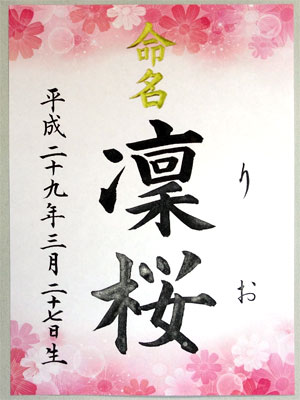 命名
りお
凛桜
平成二十九年三月二十七日生